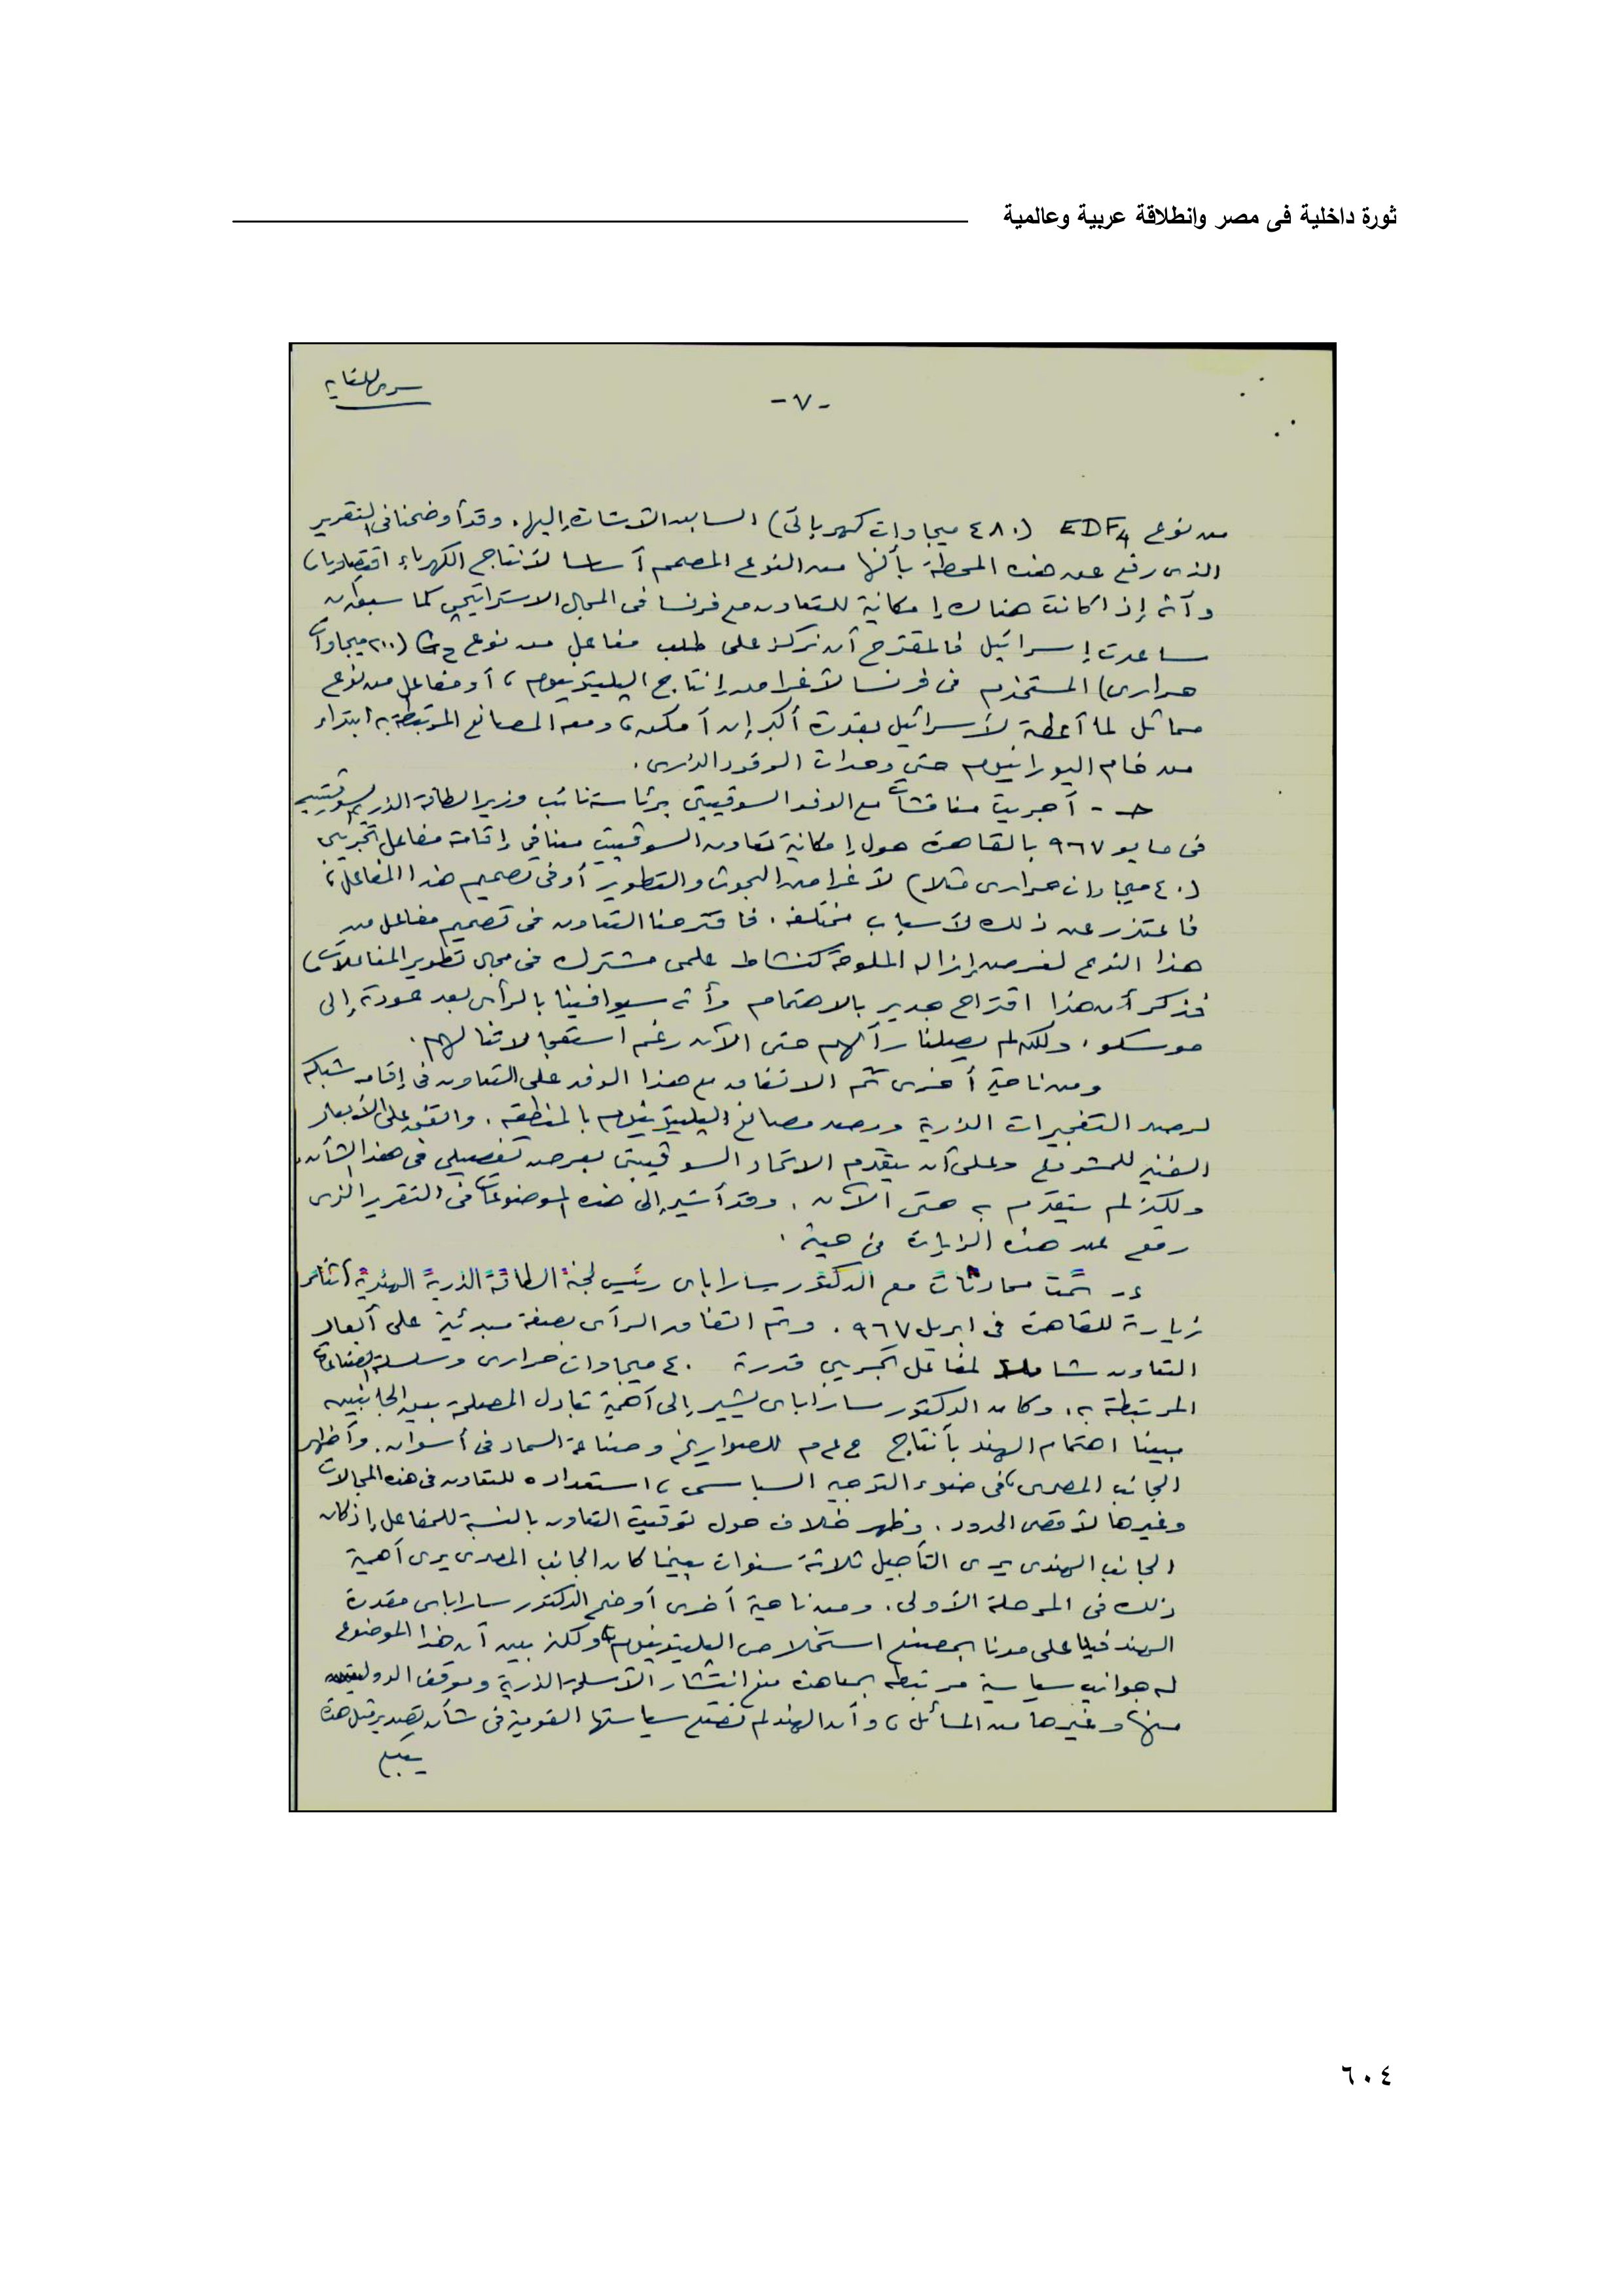 ثورة داخلية فى مصر وانطلاقة عربية وعالمية
سرى للغاية
- ٧ -
من نوع EDF4 (٤٨٠ ميجاوات كهربائى) السابق الاشارة إليها. وقد أوضحنا فى التقرير
الذى رفع عن هذه المحطة بأنها من النوع المصمم أساسا لانتاج الكهرباء اقتصاديا،
وأنه إذا كانت هناك إمكانية للتعاون مع فرنسا فى المجال الاستراتيجى كما سبق أن
ساعدت إسرائيل فالمقترح أن نركز على طلب مفاعل من نوع G2 (٢٠٠ ميجاوات
حرارى) المستخدم فى فرنسا لأغراض إنتاج البليتونيوم، أو مفاعل من نوع
مماثل لما أعطته لأسرائيل بقدرة أكبر إن أمكن، ومعه المصانع المرتبطة به ابتداء
من خام اليورانيوم حتى وحدات الوقود الذرى.
حـ - أجريت مناقشات مع الوفد السوفييتى برئاسة نائب وزير الطاقة الذرية السوفييتية
فى مايو ٩٦٧ بالقاهرة حول إمكانية تعاون السوفييت معنا فى إقامة مفاعل تجريبى
(٤٠ ميجاوات حرارى مثلا) لأغراض البحوث والتطوير أو فى تصميم هذا المفاعل،
فاعتذر عن ذلك لأسباب مختلفة. فاقترحنا التعاون فى تصميم مفاعل من
هذا النوع لغرض إزالة الملوحة كنشاط علمى مشترك فى مجال تطوير المفاعلات،
فذكر أن هذا اقتراح جدير بالاهتمام وأنه سيوافينا بالرأى بعد عودته إلى
موسكو، ولكن لم يصلنا رأيهم حتى الآن رغم استعجالاتنا لهم.
ومن ناحية أخرى تم الاتفاق مع هذا الوفد على التعاون فى إقامة شبكة
لرصد التفجيرات الذرية ورصد مصانع البليتونيوم بالمنطقة. واتفق على الأبعاد
الفنية للمشروع وعلى أن يتقدم الاتحاد السوفييتى بعرض تفصيلى فى هذا الشأن،
ولكن لم يتقدم به حتى الآن. وقد أشير إلى هذه الموضوعات فى التقرير الذى
رفع عن هذه الزيارة فى حينه.
ء - تمت محادثات مع الدكتور ساراباى رئيس لجنة الطاقة الذرية الهندية أثناء
زيارته للقاهرة فى ابريل ٩٦٧. وتم اتفاق الرأى بصفة مبدئية على أبعاد
التعاون شاملا لمفاعل تجريبى قدرة ٤٠ ميجاوات حرارى وسلسلة الصناعات
المرتبطة به، وكان الدكتور ساراباى يشير إلى أهمية تبادل المصلحة بين الجانبين
مبينا اهتمام الهند بأنتاج ج ع م للصواريخ وصناعة السماد فى أسوان. وأظهر
الجانب المصرى، فى ضوء التوجيه السياسى، استعداده للتعاون فى هذه المجالات
وغيرها لأقصى الحدود. وظهر خلاف حول توقيت التعاون بالنسبة للمفاعل إذ كان
الجانب الهندى يرى التأجيل ثلاثة سنوات بينما كان الجانب المصرى يرى أهمية
ذلك فى المرحلة الأولى. ومن ناحية أخرى أوضح الدكتور ساراباى مقدرة
الهند فنيا على مدنا بمصنع استخلاص البليتونيوم، ولكنه بين أن هذا الموضوع
له جوانب سياسية مرتبطه بمعاهدة منع انتشار الأسلحة الذرية وموقف الدولتين
منها وغيرها من المسائل، وأن الهند لم تضع سياستها القومية فى شأن تصدير مثل هذه
يتبع
٦٠٤